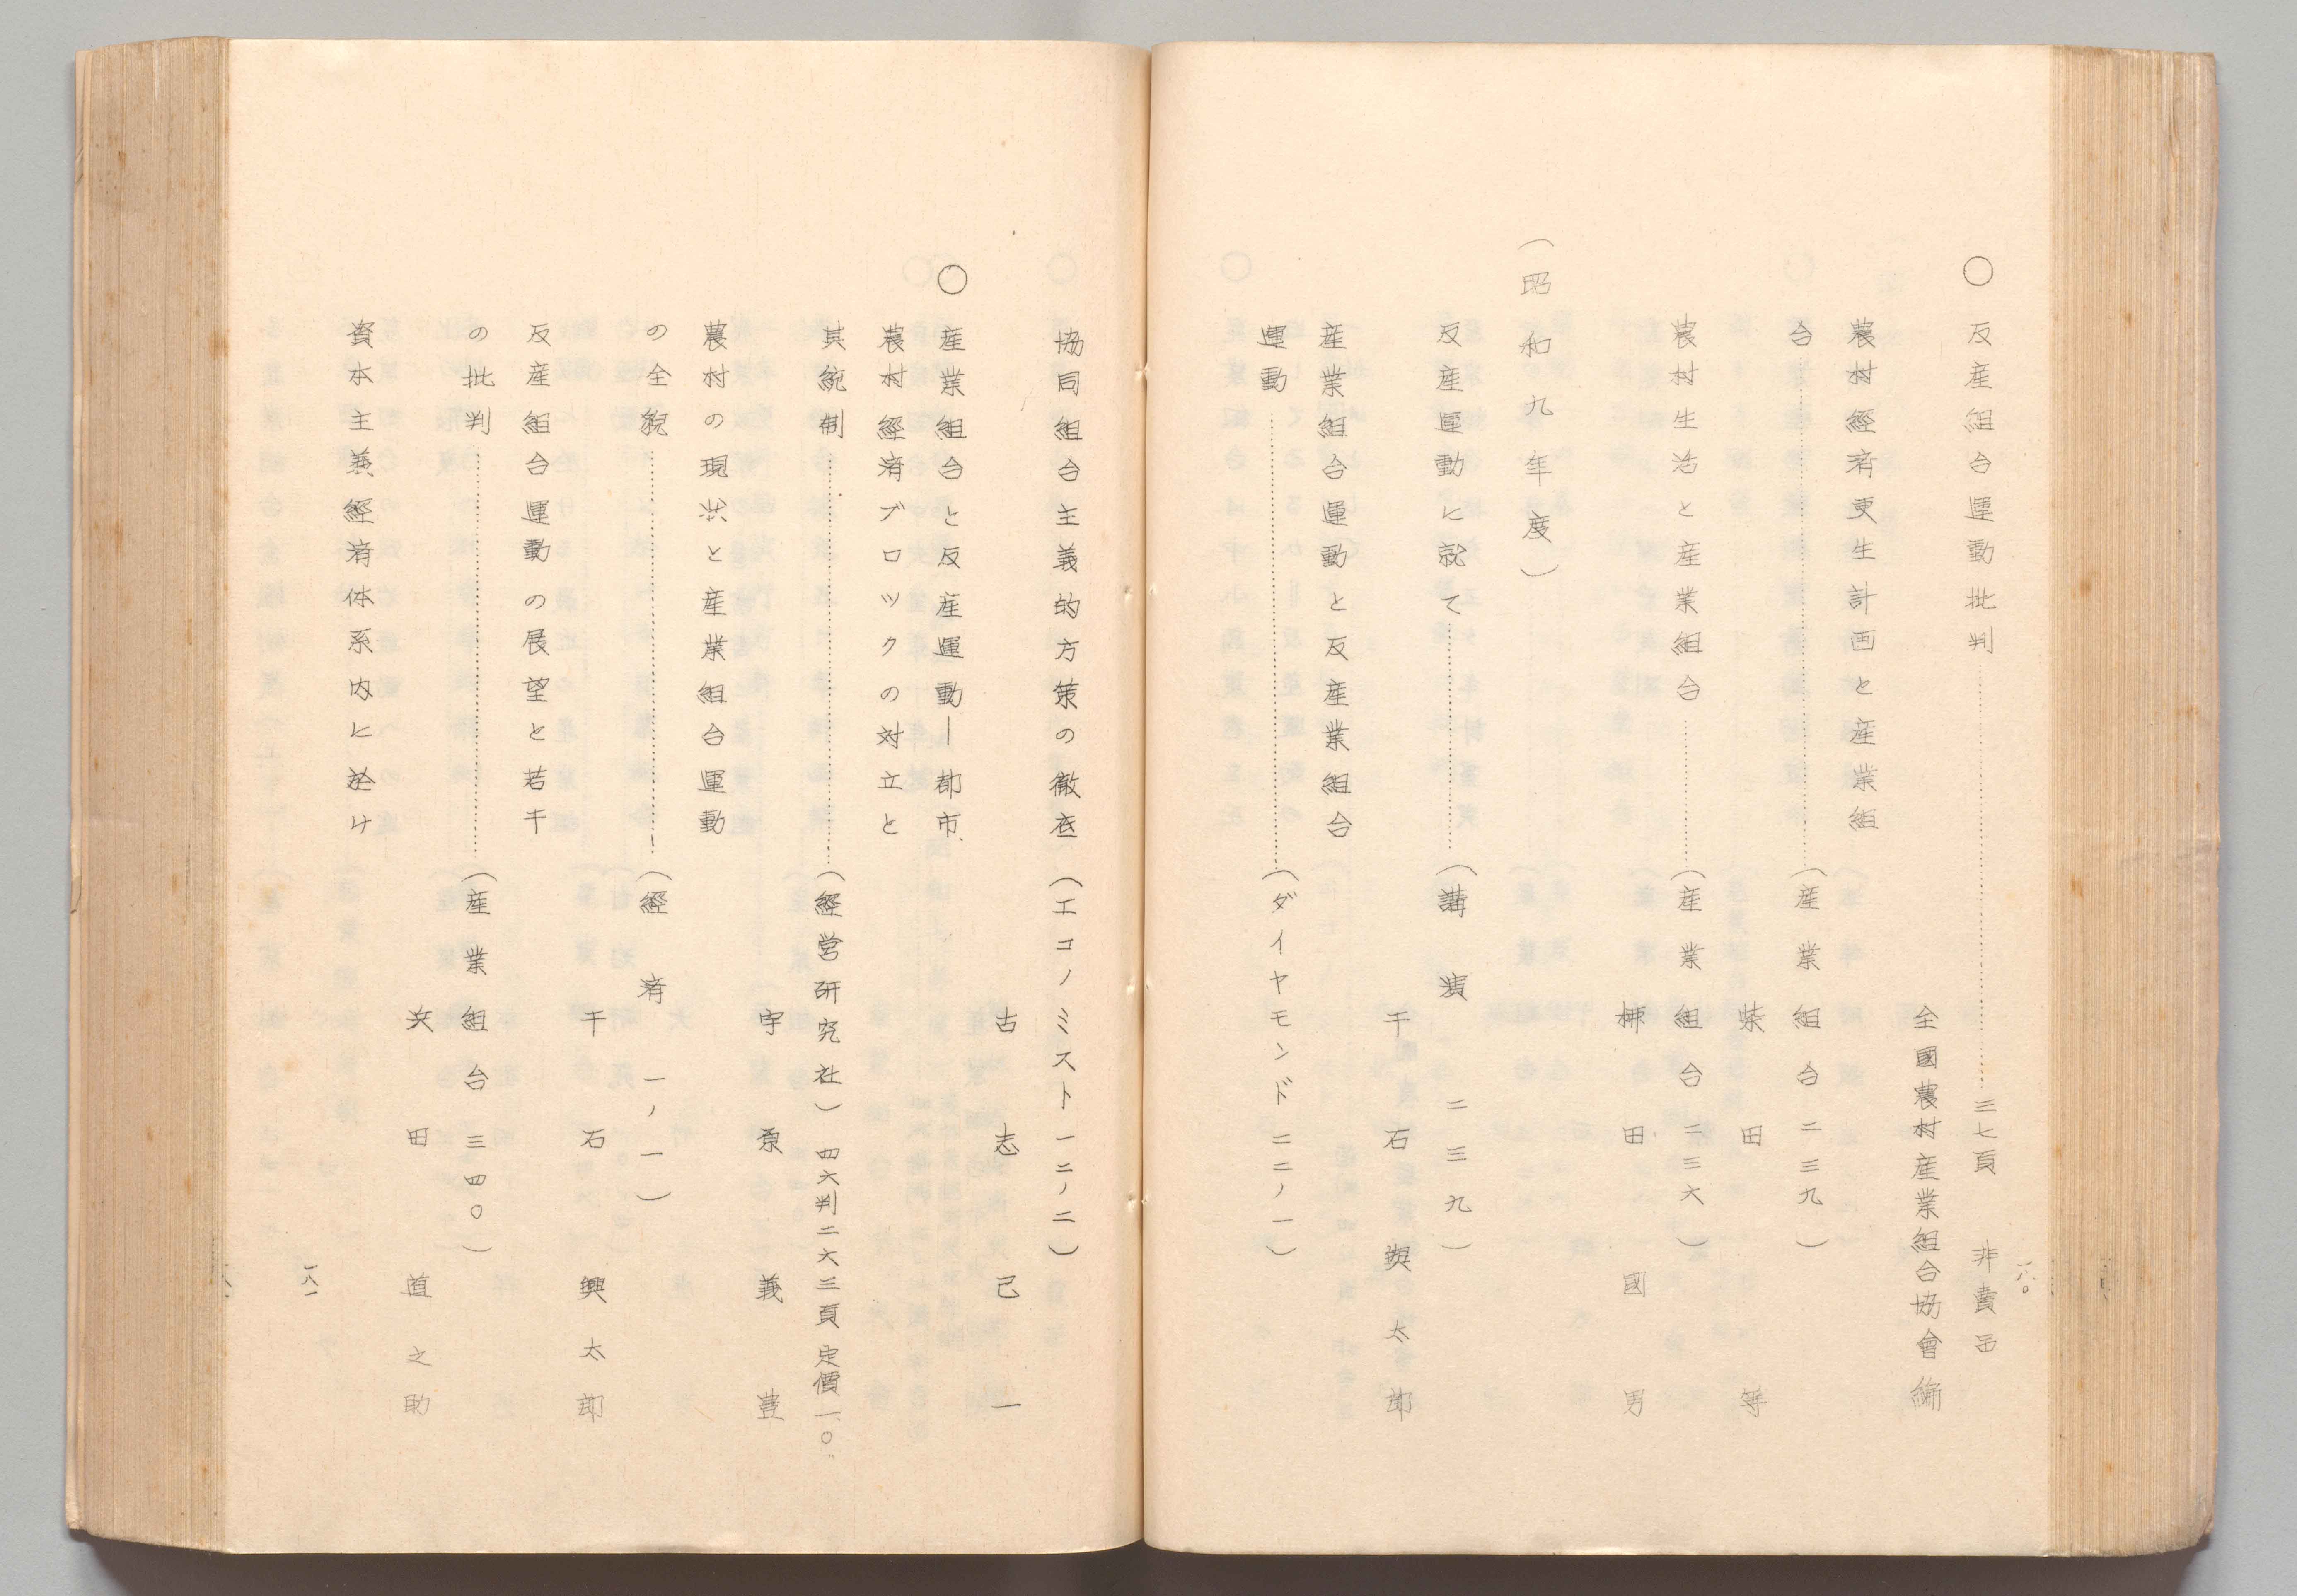 〇 反産組合運動批判……三七頁 非賣品
全國農村産業組合協會編
農村經済更生計画と産業組
合……(産業組合二三九)
柴田等
農村生活と産業組合……(産業組合二三六)
柳田國男
(昭和九年度)
反産運動に就て……(講演二三九)
千石興太郎
産業組合運動と反産業組合
運動……(ダイヤモンド二二ノ一)
一八〇
協同組合主義的方策の徹底(エコノミスト一二ノ二)
古志己一
〇 産業組合と反産運動—都市
農村經済ブロックの対立と
其統制……(經営研究社)四六判二六三頁定價一〇
宇原義豊
農村の現状と産業組合運動
の全貌……(經済一ノ一)
千石興太郎
反産組合運動の展望と若干
の批判……(産業組合三四〇)
浜田道之助
資本主義經済体系内に於け
一八一